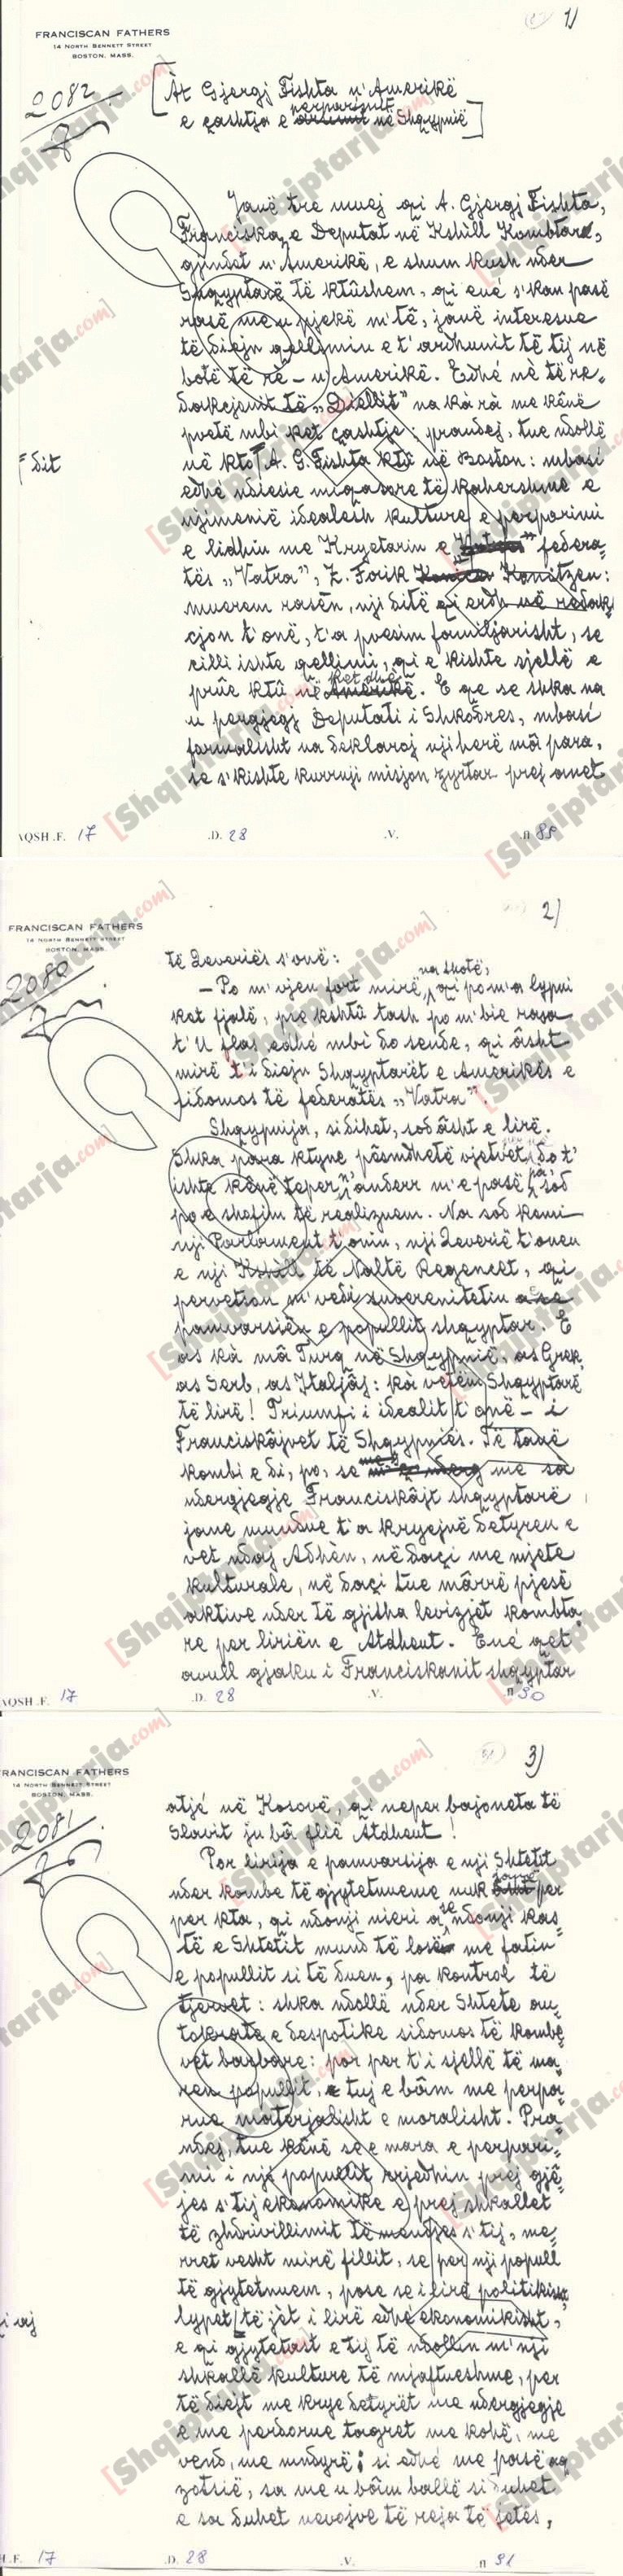 FRANCISCAN FATHERS
14 NORTH BENNETT STREET
BOSTON, MASS.
1)
2082
[Àt Gjergj Fishta n'Amerikë
e çashtja e perparimit në Shqypnië]
Janë tre muej qi A. Gjergj Fishta,
Françiskan e Deputat në Kshill Kombtar,
gjindet n'Amerikë, e shum kush nder
Shqyptarë të ktûshem, qi ené s'kan pasë
rasë me u pjekë m'të, janë interesue
të diejn qellimin e t'ardhunit të tij në
botë të rè – n'Amerikë. Edhé nè të re=
dakcjonit të „Diellit" na kà rà me kênë
pvetë mbi ket çashtje; prandej, tue ndollë
në kto dit A. G. Fishta ktû në Boston: mbasi
edhe ndiesie miqasore të kahershme e
njimenië idealesh kulture e perparimi
e lidhin me Kryetarin e federa=
tës „Vatra", Z. Faik Konitzen:
muerem rasën, nji ditë qi erdh në redak=
cjon t'onë, t'a pvesim familjarisht, se
cilli ishte qellimi, qi e kishte sjellë e
prûe ktû në ket dhé. E qe se shka na
u pergjegj Deputati i Shkodres, mbasi
formalisht na deklaroj nji herë mâ para,
se s'kishte kurrnji misjon zyrtar prej anet
AQSH.F. 17 .D. 28 .V. .fl 89
FRANCISCAN FATHERS
14 NORTH BENNETT STREET
BOSTON, MASS.
2)
2080
të Qeveriës s'onë:
– Po m'vjen fort mirë, na thotë, qi po m'a lypni
ket fjalë, pse kshtû tash po m'bie rasa
t'U flas edhé mbi do sende, qi âsht
mirë t'i diejn Shqyptarët e Amerikës e
sidomos të federatës „Vatra".
Shqypnija, si dihet, sod âsht e lirë.
Shka para ktyne pêsmdhetë vjetvet do t'
ishte kênë teper n'anderr m'e pasë pà, sod
po e shofim të realizuem. Na sod kemi
nji Parlament t'onin, nji Qeverië t'onen
e nji Kshill të Naltë Regencet, qi
pervetson m'vedi suverenitetin e
pamvarsiën e popullit shqyptar. E
as kà mâ Turq në Shqypnië, as Grek,
as Serb, as Italjâj: kà vetëm Shqyptarë
të lirë! Triumfi i idealit t'onë – i
Françiskâjvet të Shqypniës. Të tanë
kombi e di, po, se me sa
ndergjegje Françiskâjt shqyptarë
jane mundue t'a kryejnë detyren e
vet ndaj Adhèn, në daçi me mjete
kulturale, në daçi tue mârrë pjesë
aktive nder të gjitha levizjet kombta
re per liriën e Atdheut. Ené qet
avull gjaku i Franciskanit shqyptar
AQSH.F. 17 .D. 28 .V. fl 90
FRANCISCAN FATHERS
14 NORTH BENNETT STREET
BOSTON, MASS.
3)
2081
atjé në Kosovë, qi neper bajoneta të
Slavit ju bâ flië Atdheut!
Por lirija e pamvarsija e nji Shtetit
nder kombe të gjytetnueme nuk per
per kta, qi ndonji nieri a se ndonji kas=
të e Shtetit mund të losë me fatin
e popullit si të duen, pa kontrol të
tjervet: shka ndollë nder Shtete au
tokrate e despotike sidomos të kombë=
vet barbare: por per t'i sjellë të ma
ren popullit, tuj e bâm me perpa=
rue materjalisht e moralisht. Pra=
ndej, tue kênë se e mara e perpari=
mi i nji popullit rrjedhin prej gjê=
jes s'tij ekonomike e prej shkallet
të zhdrivillimit të mendjes s'tij, me=
rret vesht mirë fillit, se per nji popull
të gjytetnuem, posë se i lirë politikisht,
lypet të jèt i lirë edhé ekonomikisht,
e qi gjytetart e tij të ndollin m'nji
shkallë kulture të mjaftueshme, per
të diejt me krye detyrët me ndergjegje
e me perdorue tagret me kohë, me
vend, me mndyrë; si edhé me pasë aq
zotsië, sa me u bâim ballë si duhet
e sa duhet nevojve të reja të jetës,
H.F. 17 .D. 28 .V. .fl 91